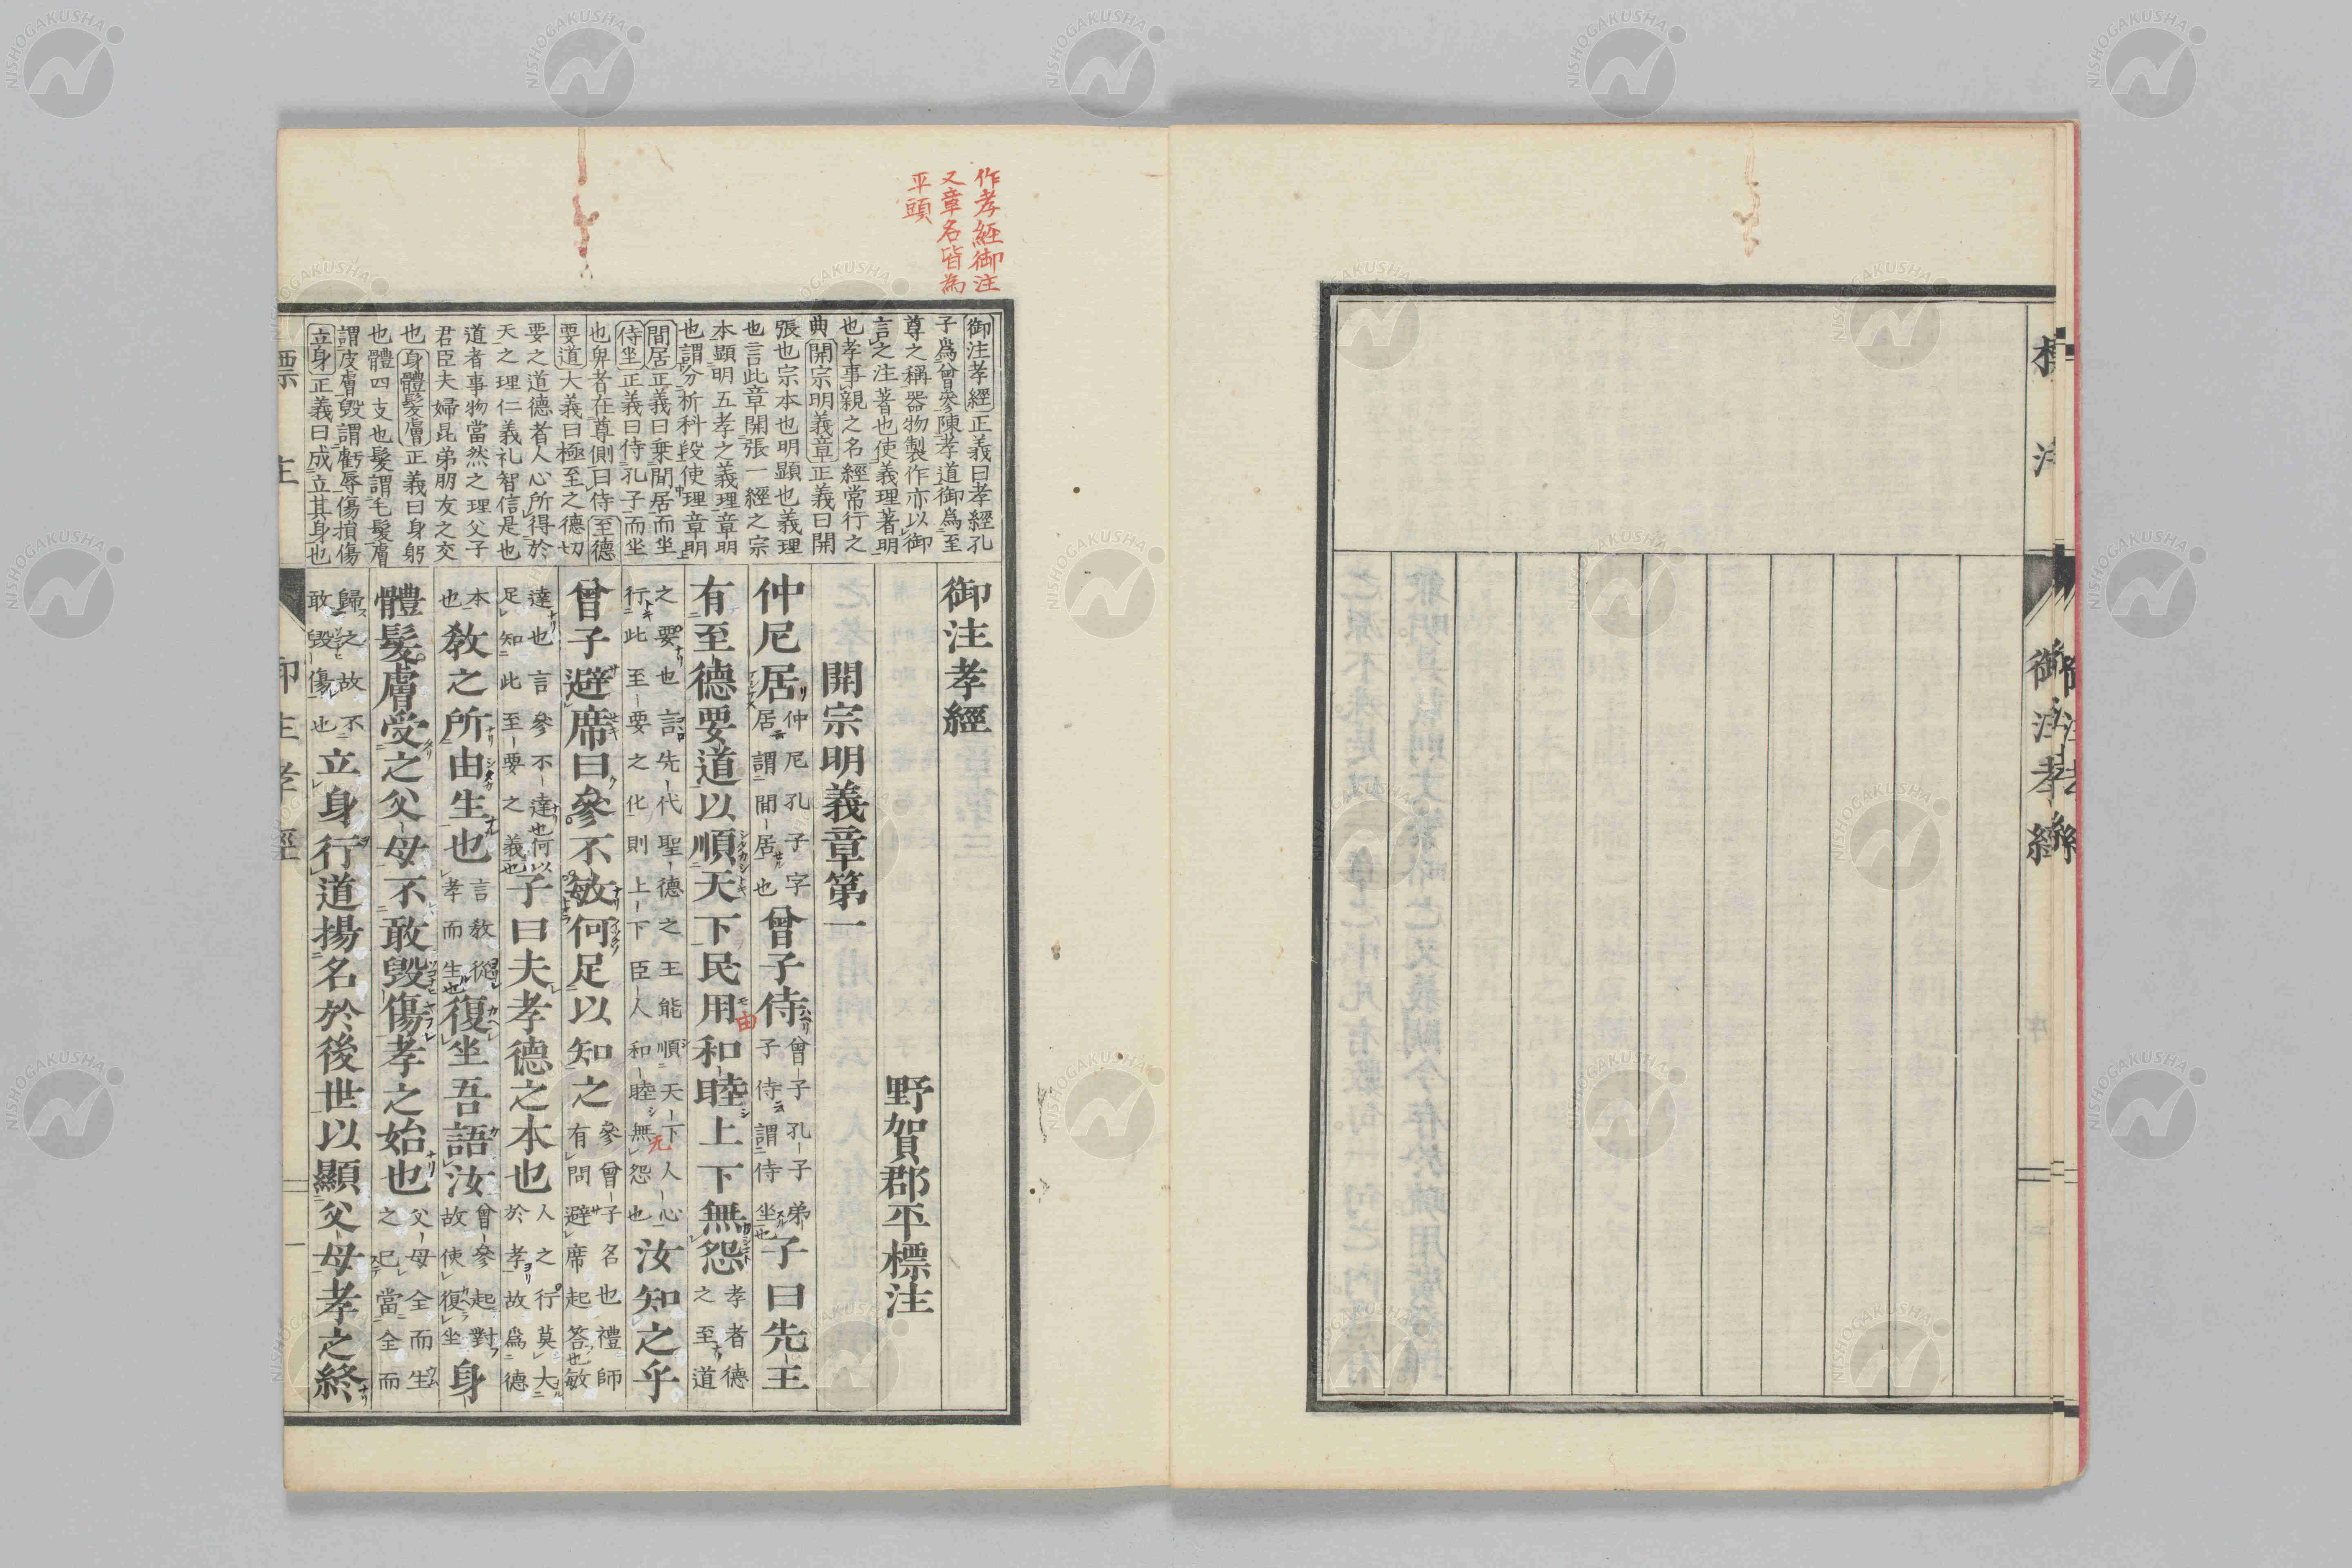 標注
御注孝經
作孝經御注
又章名皆為
平頭
御注孝經正義曰孝經孔
子爲曾參陳孝道御爲至
尊之稱器物製作亦以御
言之注著也使義理著明
也孝事親之名經常行之
典開宗明義章正義曰開
張也宗本也明顯也義理
也言此章開張一經之宗
本顯明五孝之義理章明
也謂分析科段使理章明
間居正義曰乗間居而坐
侍坐正義曰侍孔子而坐
也卑者在尊側曰侍至德
要道大義曰極至之德切
要之道德者人心所得於
天之理仁義礼智信是也
道者事物當然之理父子
君臣夫婦昆弟朋友之交
也身體髮膚正義曰身躬
也體四支也髮謂毛髮膚
謂皮膚毀謂虧辱傷損傷
立身正義曰成立其身也
御注孝經
野賀郡平標注
開宗明義章第一
仲尼居仲尼孔子字居謂間居也曾子侍曾子孔子弟子侍謂侍坐也子曰先王
有至德要道以順天下民用和睦上下無怨孝者德之至道
由
之要也言先代聖德之王能順天下人心行此至要之化則上下臣人和睦無怨也汝知之乎
无
曾子避席曰參不敏何足以知之參曾子名也禮師有問避席起答也敏
達也言參不達也何以足知此至要之義也子曰夫孝德之本也人之行莫大於孝故爲德
本也教之所由生也言教從孝而生也復坐吾語汝曾參起對故使復坐身
體髮膚受之父母不敢毀傷孝之始也父母全而生之己當全而
歸之故不敢毀傷也立身行道揚名於後世以顯父母孝之終
標注
御注孝經
一
NISHOGAKUSHA